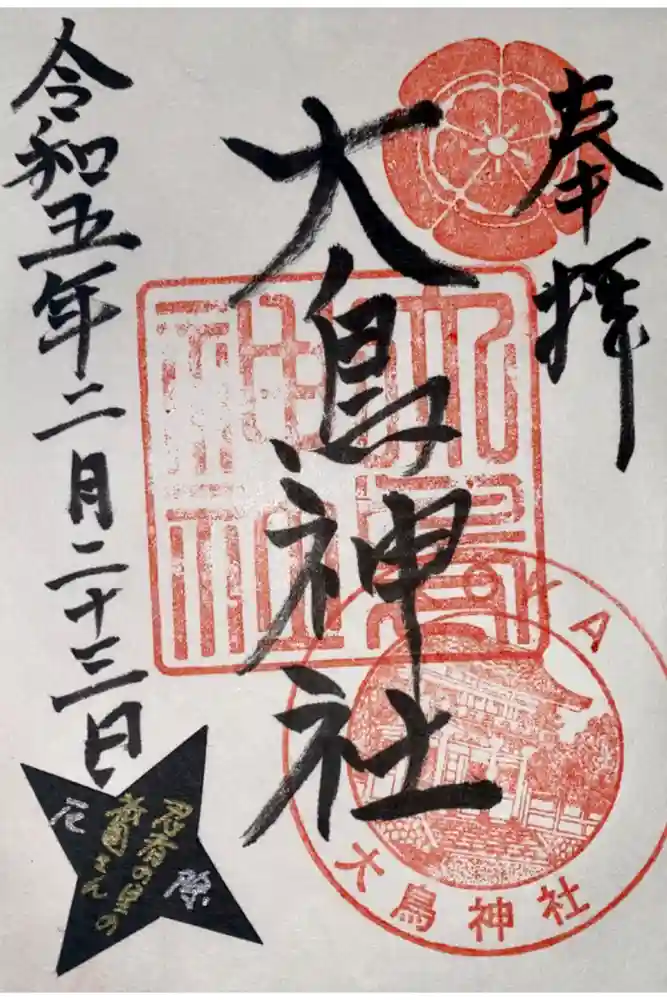 奉拝
大鳥神社
令和五年二月二十三日
大鳥
神社
大鳥神社
忍者の里の
祇園さん